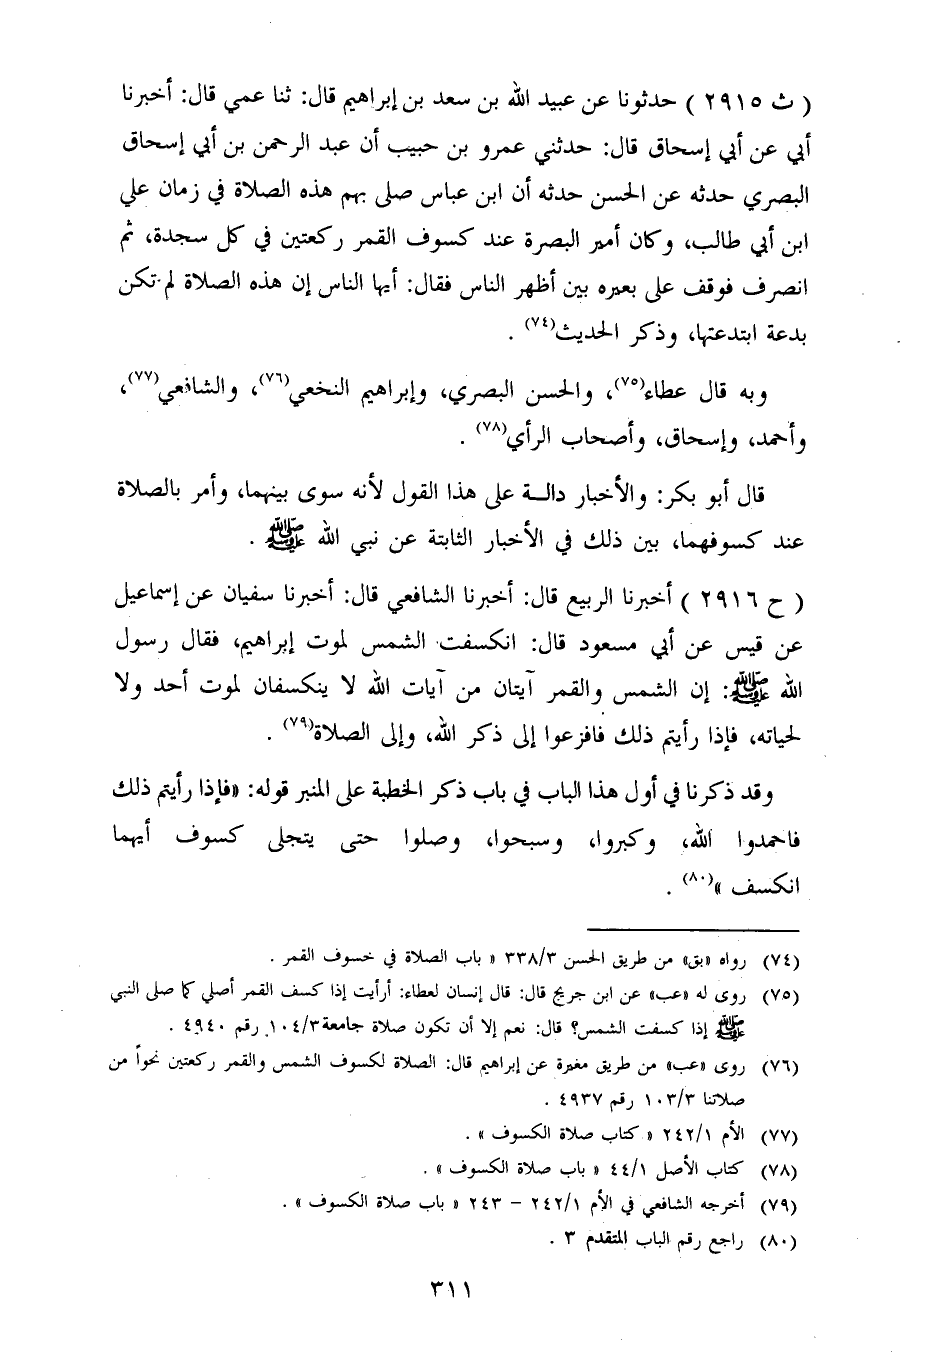 ( ث ٢٩١٥ ) حدثونا عن عبيد الله بن سعد بن إبراهيم قال: ثنا عمي قال: أخبرنا
أبي عن أبي إسحاق قال: حدثني عمرو بن حبيب أن عبد الرحمن بن أبي إسحاق
البصري حدثه عن الحسن حدثه أن ابن عباس صلى بهم هذه الصلاة في زمان علي
ابن أبي طالب، وكان أمير البصرة عند كسوف القمر ركعتين في كل سجدة، ثم
انصرف فوقف على بعيره بين أظهر الناس فقال: أيها الناس إن هذه الصلاة لم تكن
بدعة ابتدعتها، وذكر الحديث(٧٤) .
وبه قال عطاء(٧٥)، والحسن البصري، وإبراهيم النخعي(٧٦)، والشافعي(٧٧)،
وأحمد، وإسحاق، وأصحاب الرأي(٧٨) .
قال أبو بكر: والأخبار دالــة على هذا القول لأنه سوى بينهما، وأمر بالصلاة
عند كسوفهما، بين ذلك في الأخبار الثابتة عن نبي الله ﷺ .
( ح ٢٩١٦ ) أخبرنا الربيع قال: أخبرنا الشافعي قال: أخبرنا سفيان عن إسماعيل
عن قيس عن أبي مسعود قال: انكسفت الشمس لموت إبراهيم، فقال رسول
الله ﷺ: إن الشمس والقمر آيتان من آيات الله لا ينكسفان لموت أحد ولا
لحياته، فإذا رأيتم ذلك فافزعوا إلى ذكر الله، وإلى الصلاة(٧٩) .
وقد ذكرنا في أول هذا الباب في باب ذكر الخطبة على المنبر قوله: «فإذا رأيتم ذلك
فاحمدوا الله، وكبروا، وسبحوا، وصلوا حتى يتجلى كسوف أيهما
انكسف »(٨٠) .
(٧٤) رواه «بق» من طريق الحسن ٣٣٨/٣ « باب الصلاة في خسوف القمر .
(٧٥) روى له «عب» عن ابن جريج قال: قال إنسان لعطاء: أرأيت إذا كسف القمر أصلي كما صلى النبي
ﷺ إذا كسفت الشمس؟ قال: نعم إلا أن تكون صلاة جامعة ١٠٤/٣ رقم ٤٩٤٠ .
(٧٦) روى «عب» من طريق مغيرة عن إبراهيم قال: الصلاة لكسوف الشمس والقمر ركعتين نحواً من
صلاتنا ١٠٣/٣ رقم ٤٩٣٧ .
(٧٧) الأم ٢٤٢/١ « كتاب صلاة الكسوف » .
(٧٨) كتاب الأصل ٤٤/١ « باب صلاة الكسوف » .
(٧٩) أخرجه الشافعي في الأم ٢٤٢/١ – ٢٤٣ « باب صلاة الكسوف » .
(٨٠) راجع رقم الباب المتقدم ٣ .
٣١١